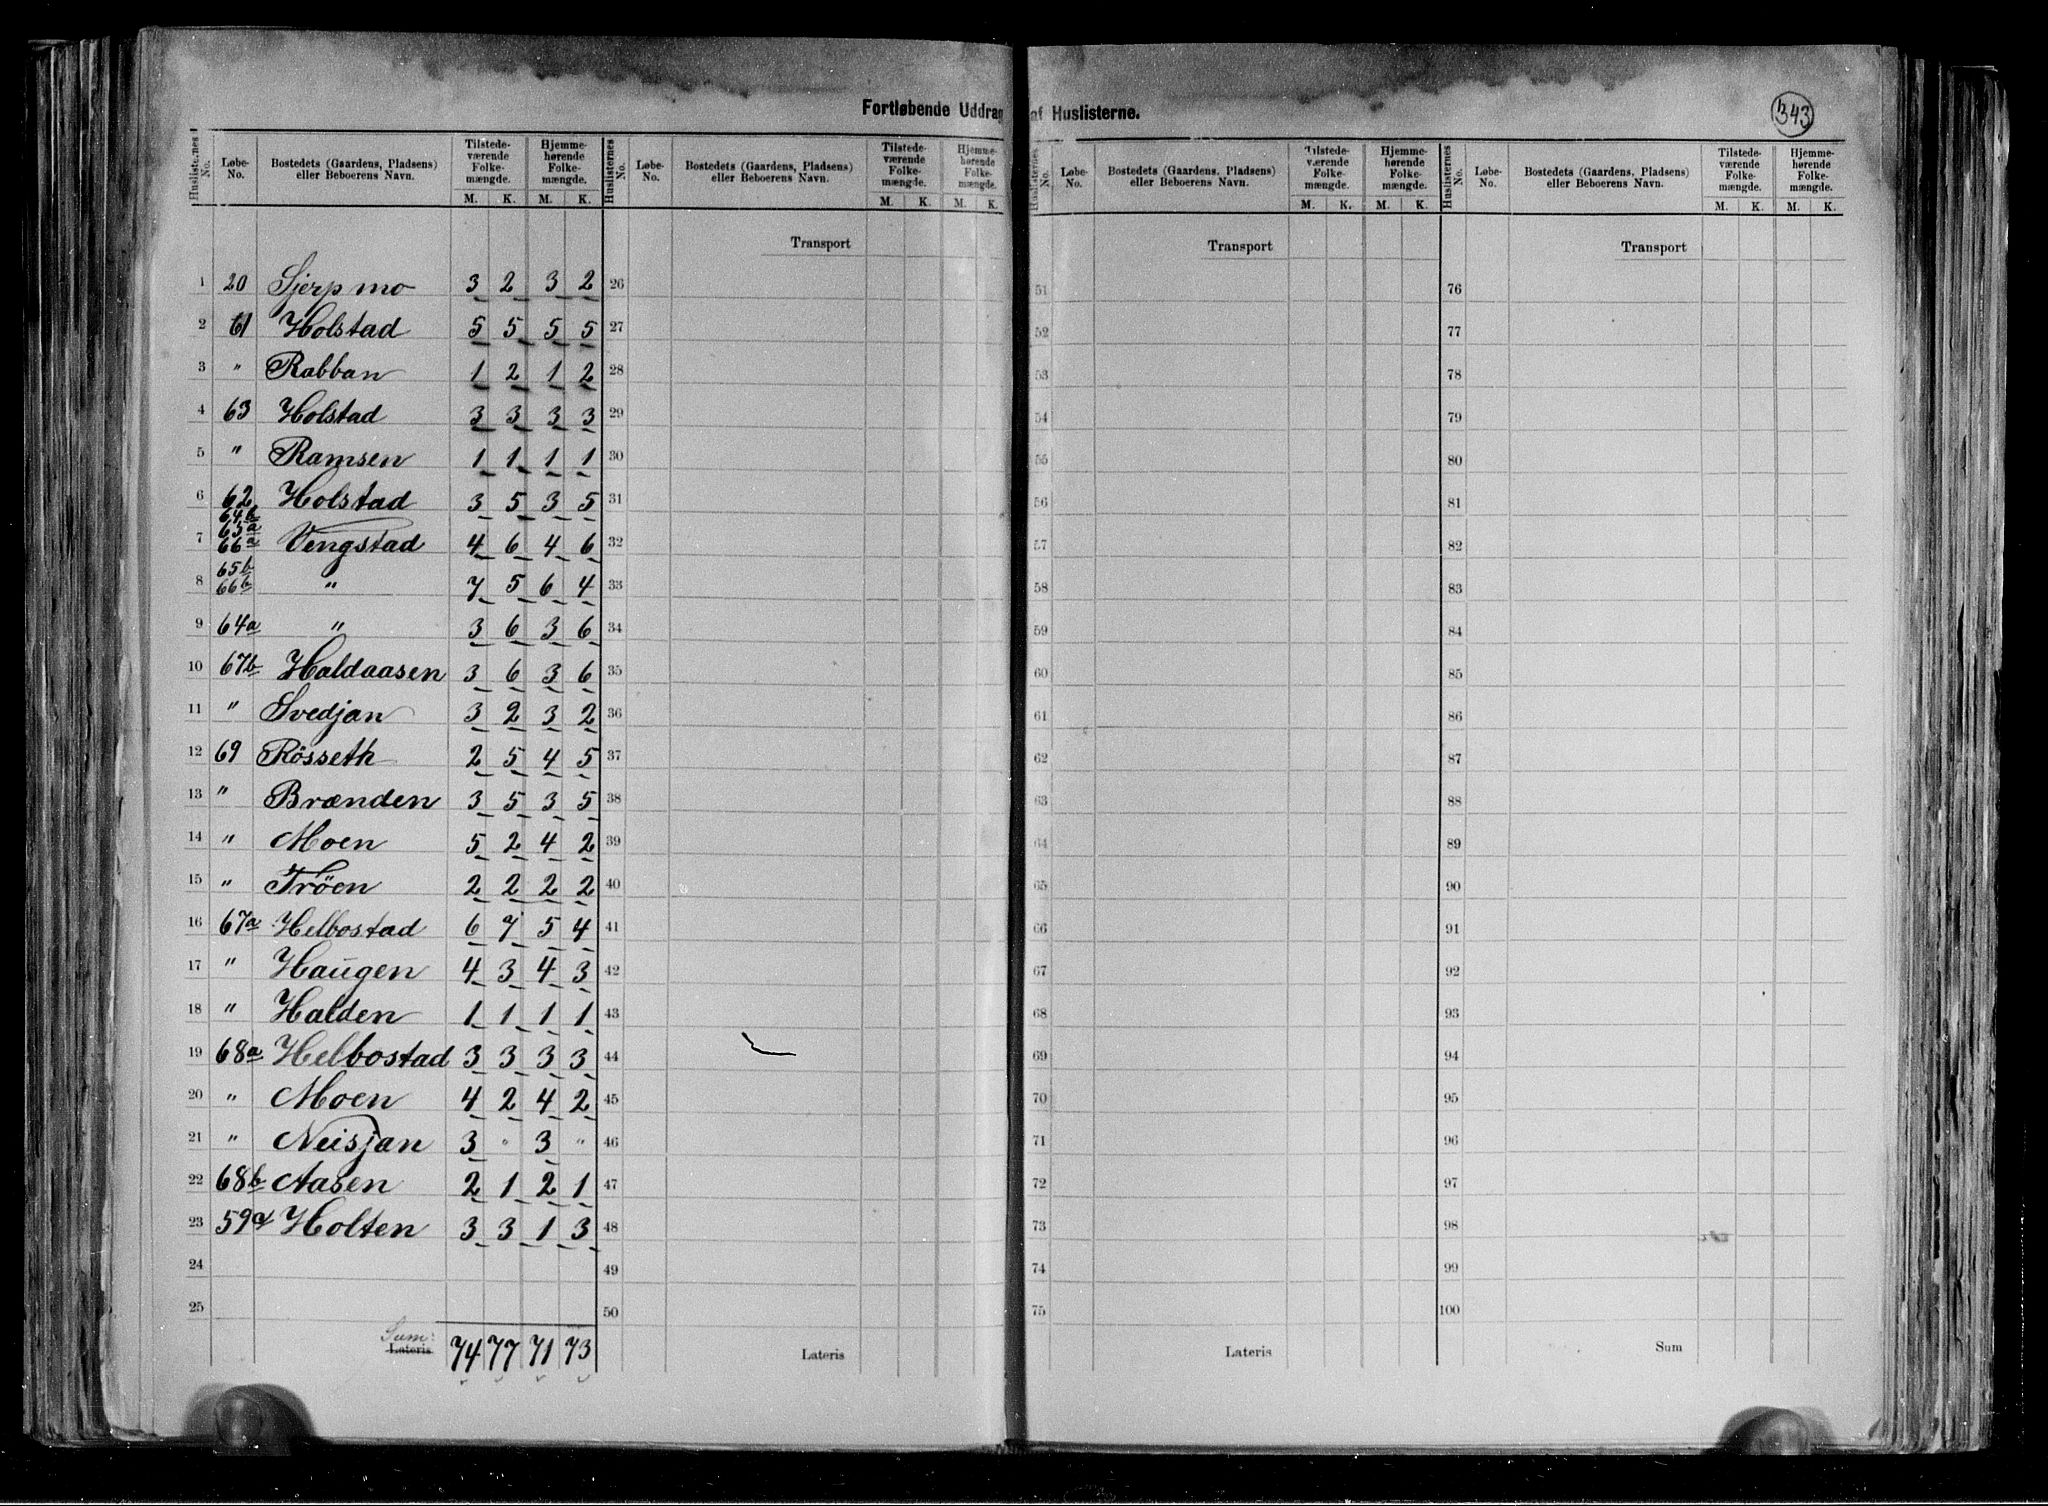 Fortløbende Uddrag af Huslisterne.
343
Huslisternes No. | Løbe-No. | Bostedets (Gaardens, Pladsens) eller Beboerens Navn. | Tilstedeværende Folkemængde. M. K. | Hjemmehørende Folkemængde. M. K.
1 20 Sjerpmo 3 2 3 2
2 61 Holstad 5 5 5 5
3 " Rabban 1 2 1 2
4 63 Holstad 3 3 3 3
5 " Ramsen 1 1 1 1
6 62 Holstad 3 5 3 5
7 64b 65a 66a Vengstad 4 6 4 6
8 65b 66b " 7 5 6 4
9 64a " 3 6 3 6
10 67b Haldaasen 3 6 3 6
11 " Svedjan 3 2 3 2
12 69 Rösseth 2 5 4 5
13 " Brænden 3 5 3 5
14 " Moen 5 2 4 2
15 " Tröen 2 2 2 2
16 67a Helbostad 6 7 5 4
17 " Haugen 4 3 4 3
18 " Halden 1 1 1 1
19 68a Helbostad 3 3 3 3
20 " Moen 4 2 4 2
21 " Neisjan 3 " 3 "
22 68b Aasen 2 1 2 1
23 59a Holten 3 3 1 3
24
25
Sum: Lateris 74 77 71 73
Huslisternes No. | Løbe-No. | Bostedets (Gaardens, Pladsens) eller Beboerens Navn. | Tilstedeværende Folkemængde. M. K. | Hjemmehørende Folkemængde. M. K.
Transport
26
27
28
29
30
31
32
33
34
35
36
37
38
39
40
41
42
43
44
45
46
47
48
49
50
Lateris
Huslisternes No. | Løbe-No. | Bostedets (Gaardens, Pladsens) eller Beboerens Navn. | Tilstedeværende Folkemængde. M. K. | Hjemmehørende Folkemængde. M. K.
Transport
51
52
53
54
55
56
57
58
59
60
61
62
63
64
65
66
67
68
69
70
71
72
73
74
75
Lateris
Huslisternes No. | Løbe-No. | Bostedets (Gaardens, Pladsens) eller Beboerens Navn. | Tilstedeværende Folkemængde. M. K. | Hjemmehørende Folkemængde. M. K.
Transport
76
77
78
79
80
81
82
83
84
85
86
87
88
89
90
91
92
93
94
95
96
97
98
99
100
Sum